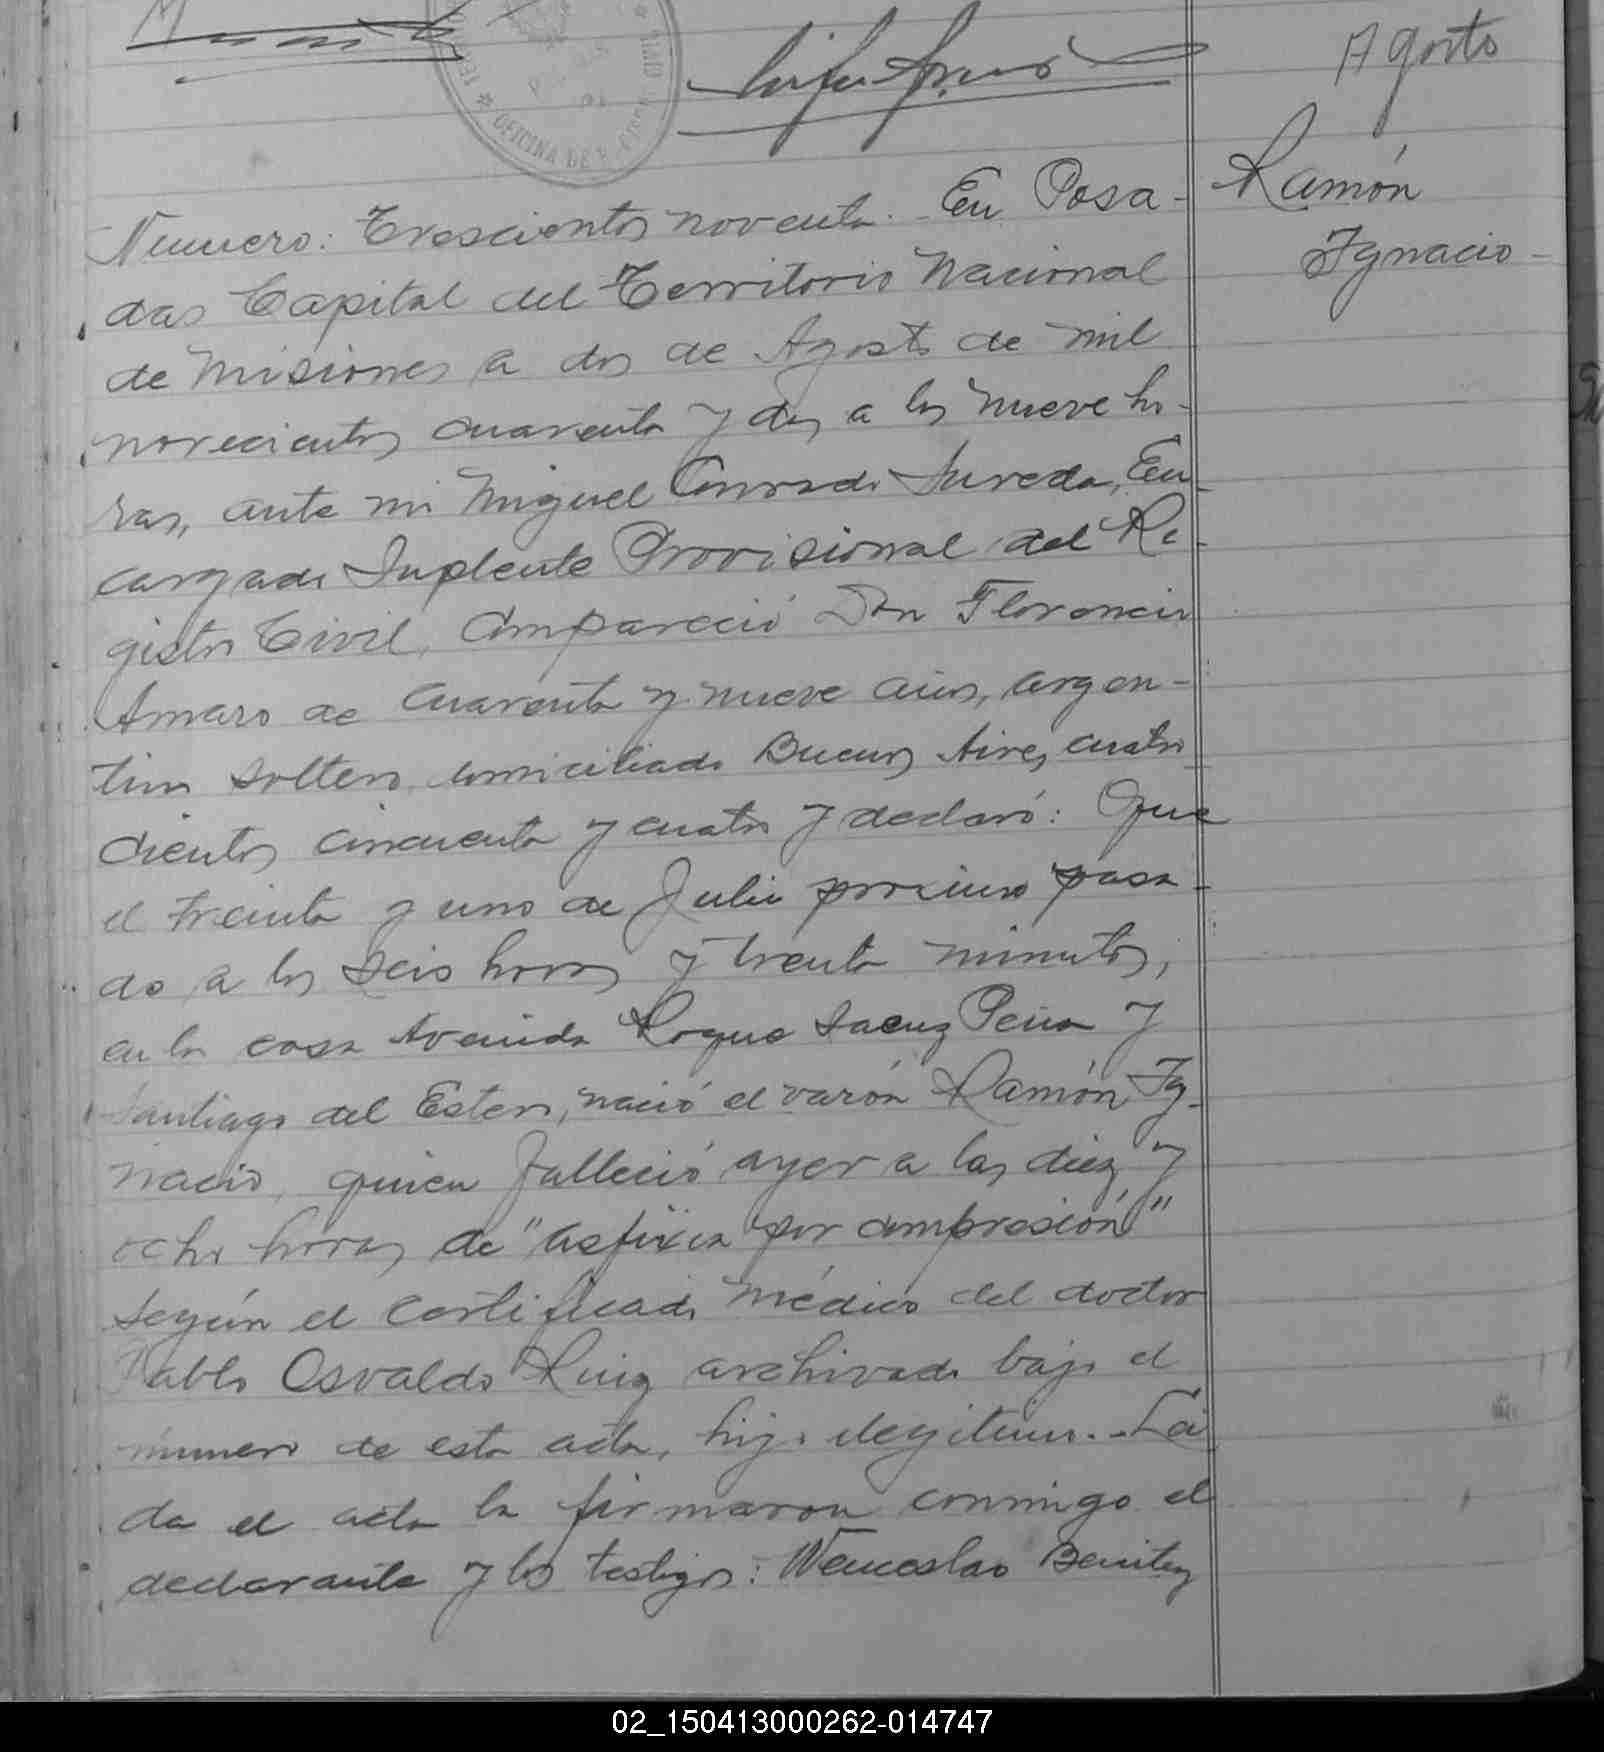 Agosto
OFICINA DE
Ramón
Ygnacio -
Numero: Trescientos noventa. En Posa-
das Capital del Territorio Nacional
de Misiones a dos de Agosto de mil
novecientos cuarenta y dos a las nueve ho-
ras, ante mi Miguel Conrado Sureda, En-
cargado Suplente Provisional del Re-
gistro Civil, compareció Don Florencio
Amaro de cuarenta y nueve años, argen-
tino soltero, domiciliado Buenos Aires cuatro
cientos cincuenta y cuatro y declaró: Que
el treinta y uno de Julio proximo pasa-
do a las seis horas y treinta minutos,
en la casa Avenida Roque Saenz Peña y
Santiago del Estero, nació el varón Ramón Yg-
nacio, quien falleció ayer a las diez y
ocho horas de "asfixia por compresión"
según el certificado médico del doctor
Pablo Osvaldo Ruiz archivado bajo el
numero de esta acta, hijo ilegitimo. - Leí
da el acta la firmaron conmigo el
declarante y los testigos: Wenceslao Benitez
02_150413000262-014747